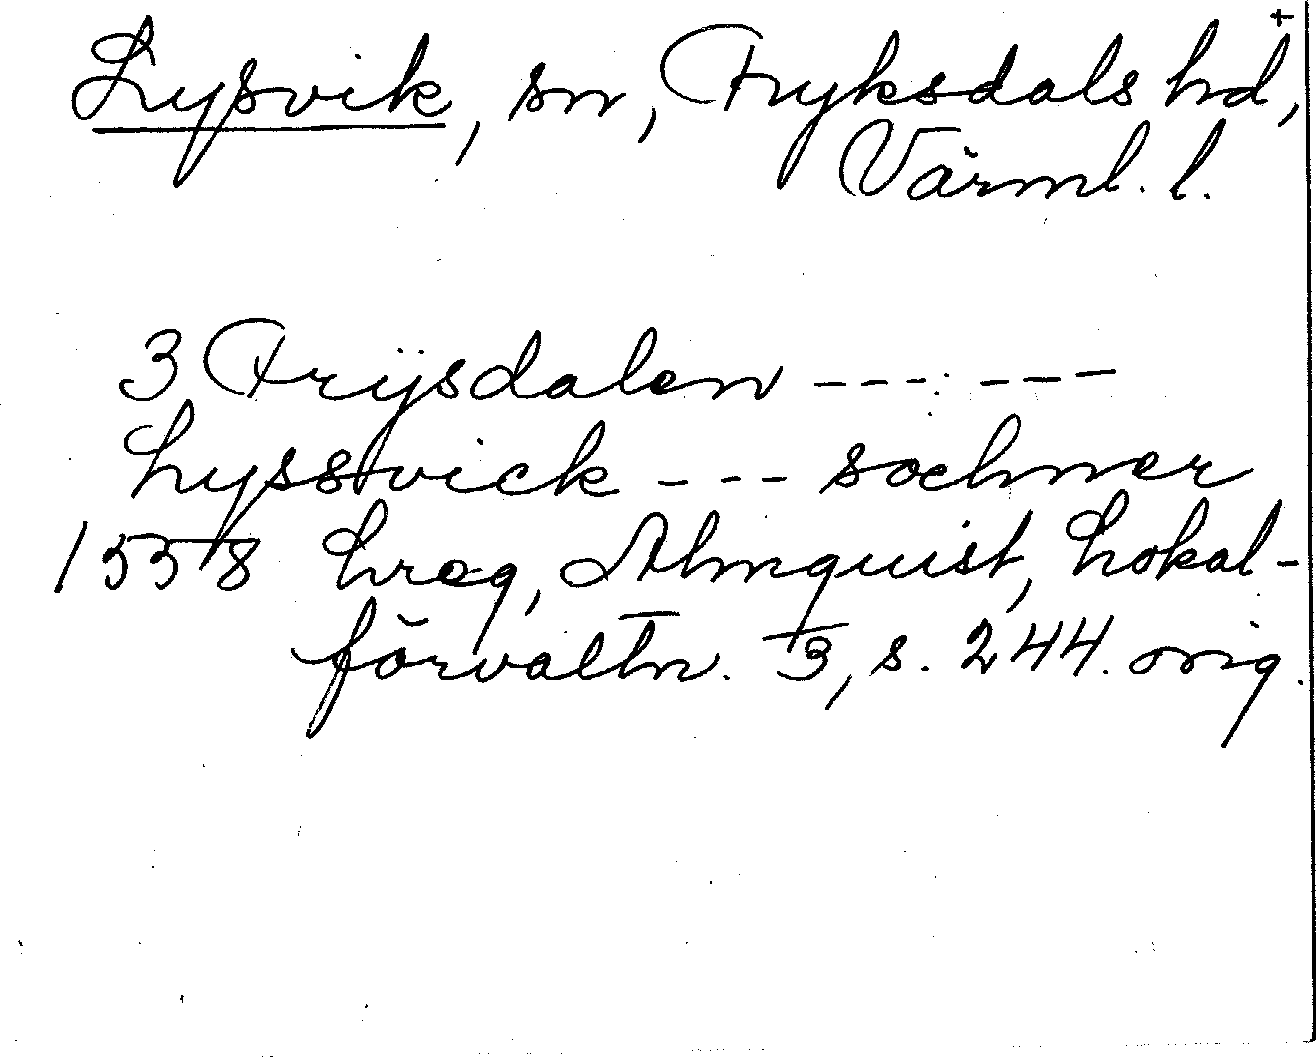 +
Lysvik, sn, Fryksdals hd,
Värml. l.
3 Frÿsdalen --- ---
Lyssvick --- sochner
1558 Lreg, Almquist, Lokal-
förvaltn. 3, s. 244. orig.